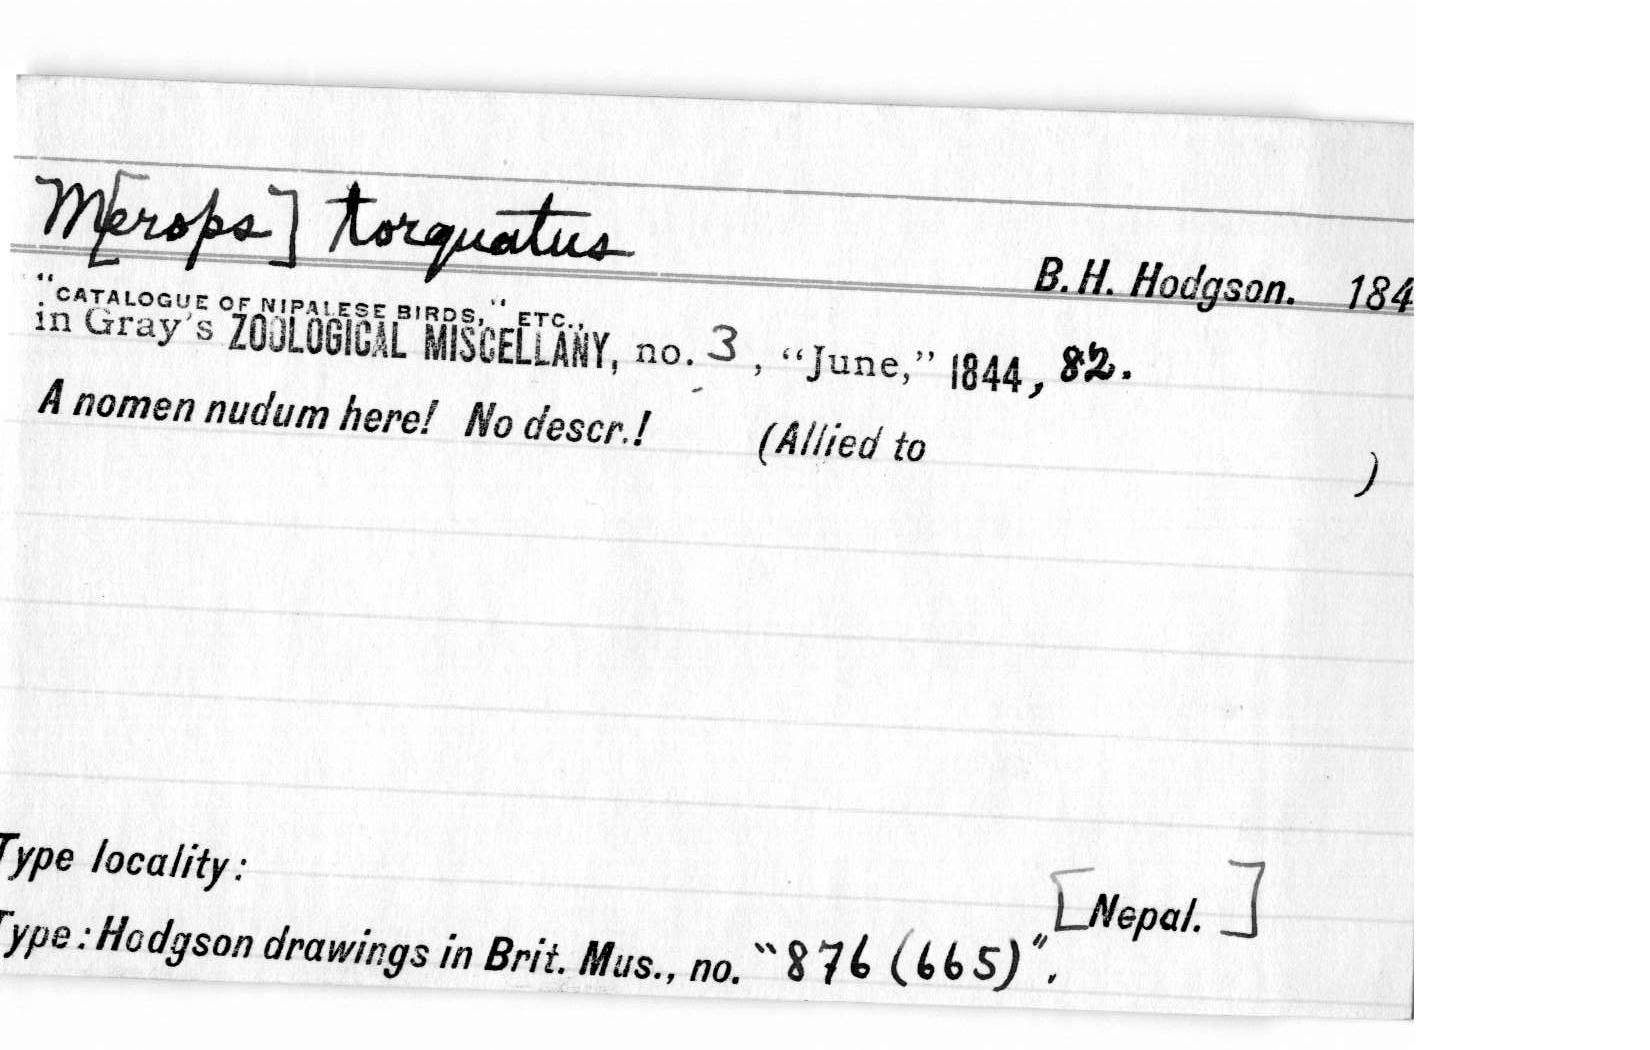 M[erops] torquatus
B. H. Hodgson. 184
"CATALOGUE OF NIPALESE BIRDS," ETC.,
in Gray's ZOOLOGICAL MISCELLANY, no. 3, "June," 1844, 82.
A nomen nudum here! No descr.! (Allied to )
Type locality: [Nepal.]
Type: Hodgson drawings in Brit. Mus., no. "876 (665)".